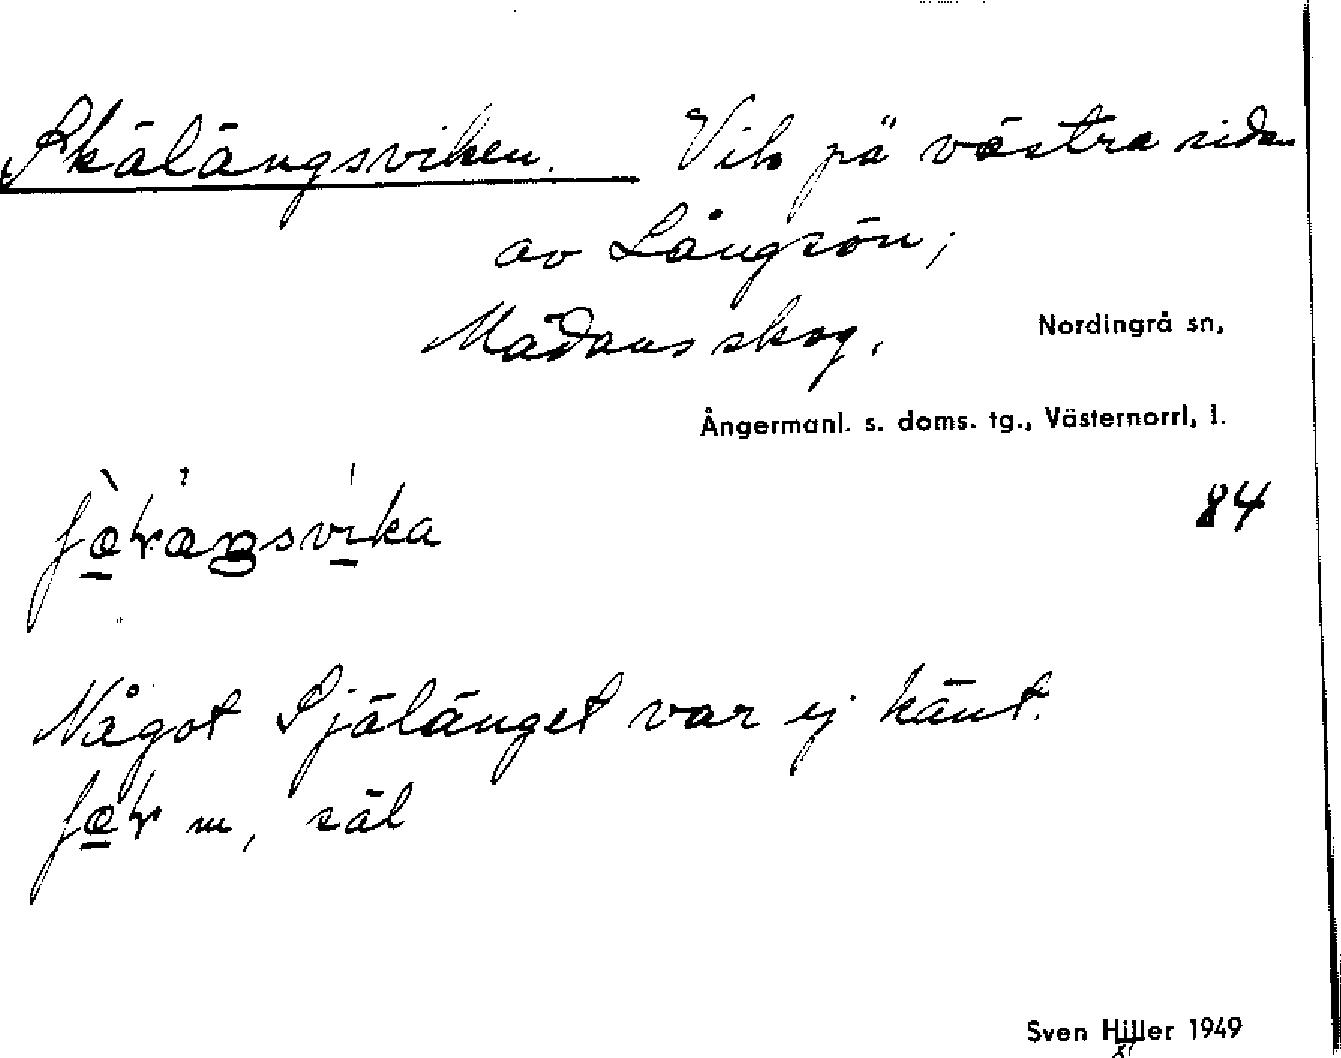 Skälängsviken. Vik på västra sidan
av Långsön;
Mädans skog. Nordingrå sn,
Ångermanl. s. doms. tg., Västernorrl, l.
84
Något Själänget var ej känt.
m, säl
Sven Hiller 1949